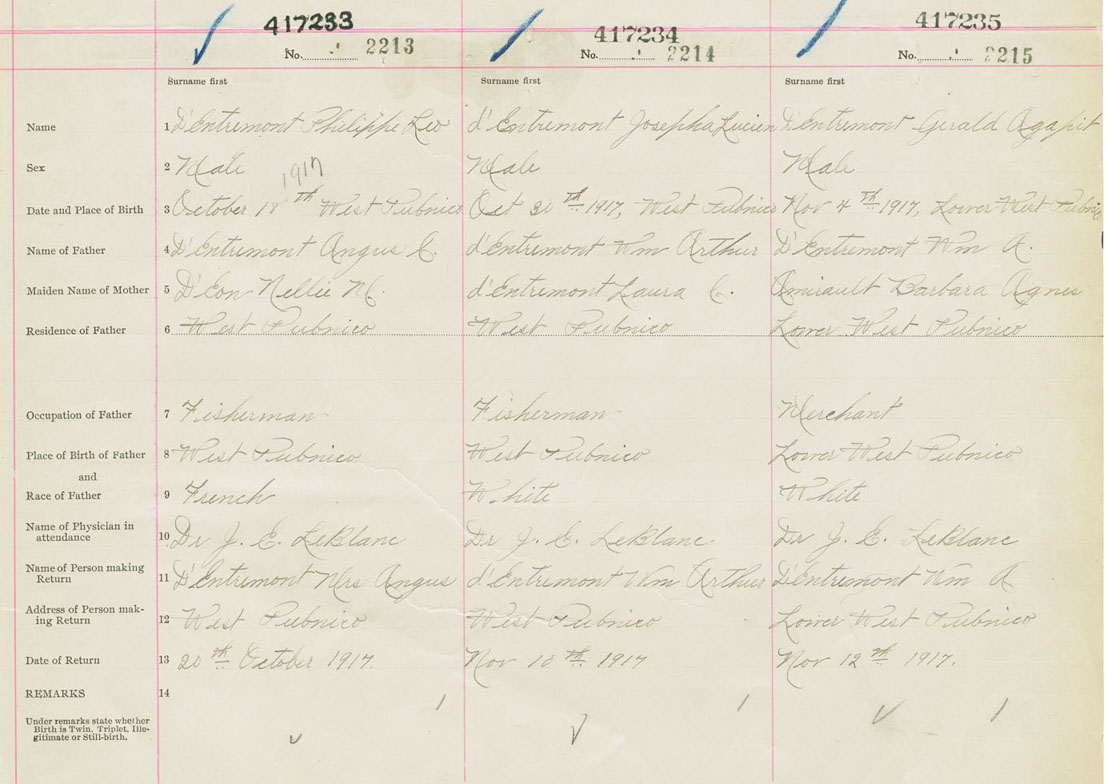 417233 417234 417235
No. 2213 No. 2214 No. 2215
Surname first Surname first Surname first
Name 1 D'Entremont Philippe Leo d'Entremont Josepha Lucien D'Entremont Gerald Agapit
Sex 2 Male Male Male
1917
Date and Place of Birth 3 October 18th West Pubnico Oct 30th 1917, West Pubnico Nov 4th 1917, Lower West Pubnico
Name of Father 4 D'Entremont Angus C. d'Entremont Wm Arthur D'Entremont Wm A.
Maiden Name of Mother 5 D'Eon Nellie M. d'Entremont Laura C. Amirault Barbara Agnes
Residence of Father 6 West Pubnico West Pubnico Lower West Pubnico
Occupation of Father 7 Fisherman Fisherman Merchant
Place of Birth of Father 8 West Pubnico West Pubnico Lower West Pubnico
and
Race of Father 9 French White White
Name of Physician in
attendance 10 Dr J. E. LeBlanc Dr J. E. LeBlanc Dr J. E. LeBlanc
Name of Person making
Return 11 D'Entremont Mrs Angus d'Entremont Wm Arthur D'Entremont Wm A
Address of Person mak-
ing Return 12 West Pubnico West Pubnico Lower West Pubnico
Date of Return 13 20th October 1917. Nov 10th 1917 Nov 12th 1917.
REMARKS 14
Under remarks state whether
Birth is Twin, Triplet, Ille-
gitimate or Still-birth.